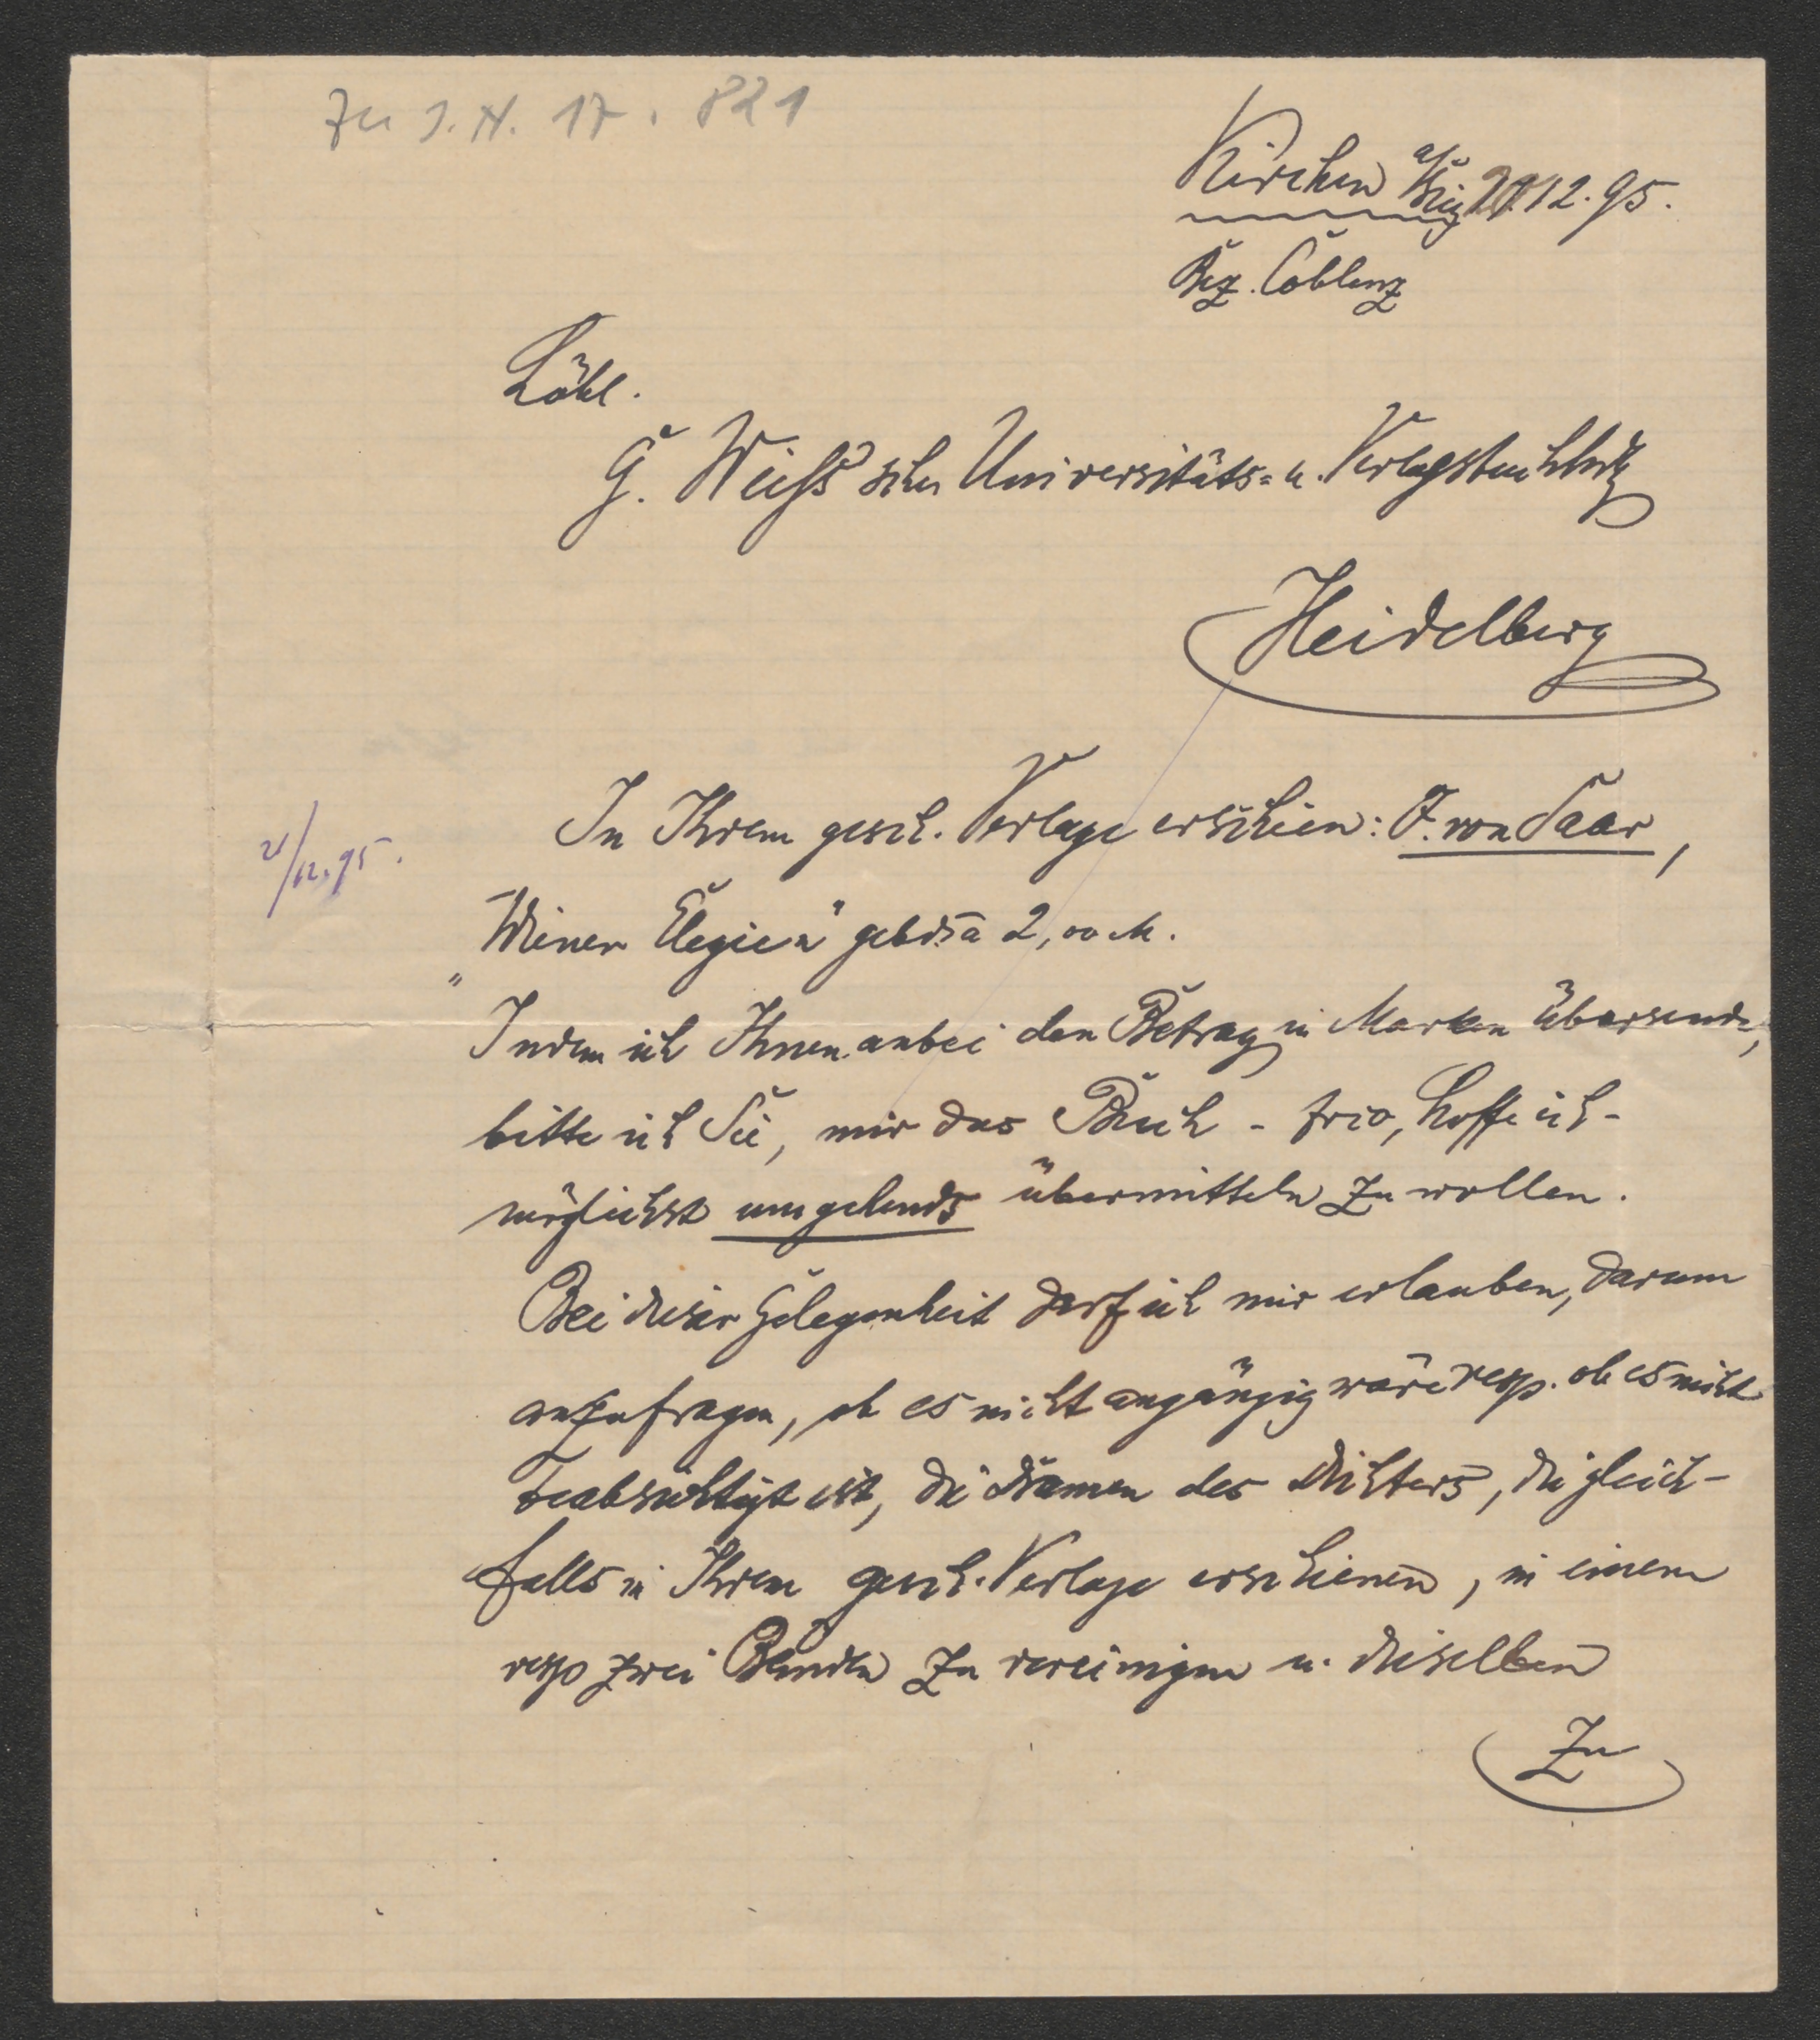 Zu I. N. 17. 821
Kirchen a/Sieg 12. 95.
Bez. Coblenz
Löbl.
G. Weiss'schen Universitäts- u. Verlagsbuchhdlg
Heidelberg
In Ihrem gesch. Verlage erschien: F. von Saar,
21/12. 95.
„Wiener Elegien" gebd. à 2,00 M.
Indem ich Ihnen anbei den Betrag in Marken übersende,
bitte ich Sie, mir das Buch - frco, hoffe ich -
möglichst umgehends übermitteln zu wollen.
Bei dieser Gelegenheit darf ich mir erlauben, darum
anzufragen, ob es nicht angängig wäre resp. ob es nicht
beabsichtigt ist, die Dramen des Dichters, die gleich-
falls in Ihrem gesch. Verlage erschienen, in einem
resp zwei Bänden zu vereinigen u. dieselben
zu